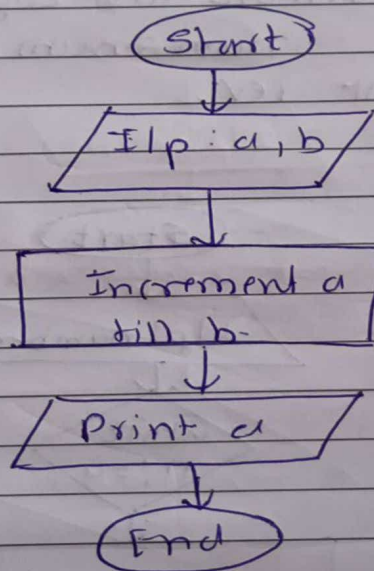 Start
I/p : a, b
Increment a
till b.
Print a
End